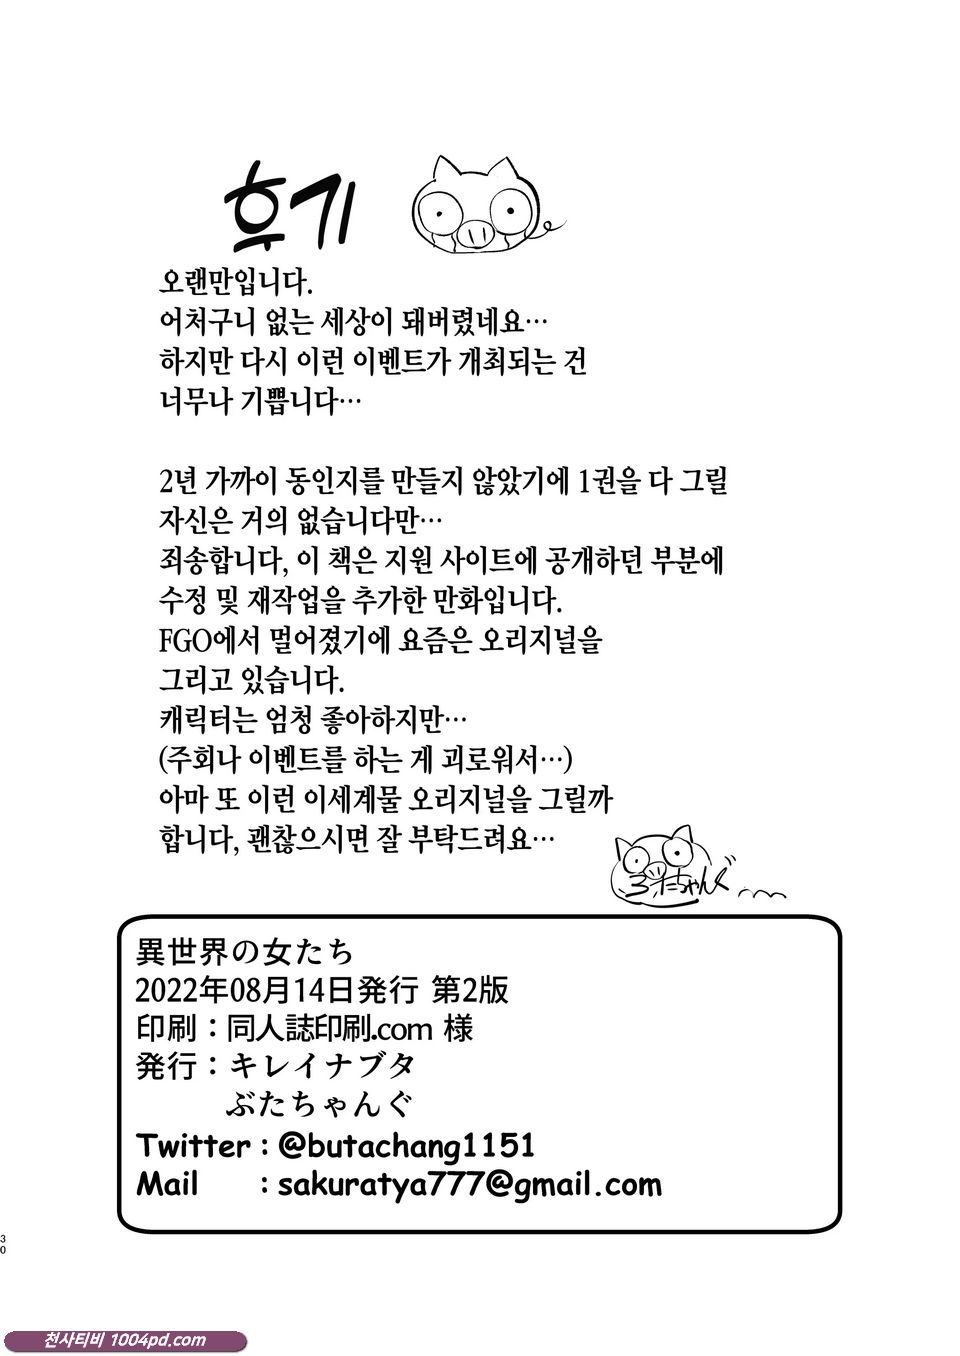 후기
오랜만입니다.
어처구니 없는 세상이 돼버렸네요…
하지만 다시 이런 이벤트가 개최되는 건
너무나 기쁩니다…
2년 가까이 동인지를 만들지 않았기에 1권을 다 그릴
자신은 거의 없습니다만…
죄송합니다, 이 책은 지원 사이트에 공개하던 부분에
수정 및 재작업을 추가한 만화입니다.
FGO에서 멀어졌기에 요즘은 오리지널을
그리고 있습니다.
캐릭터는 엄청 좋아하지만…
(주회나 이벤트를 하는 게 괴로워서…)
아마 또 이런 이세계물 오리지널을 그릴까
합니다, 괜찮으시면 잘 부탁드려요…
ぶたちゃんぐ
異世界の女たち
2022年08月14日発行 第2版
印刷：同人誌印刷.com 様
発行：キレイナブタ
ぶたちゃんぐ
Twitter : @butachang1151
Mail : sakuratya777@gmail.com
30
천사티비 1004pd.com